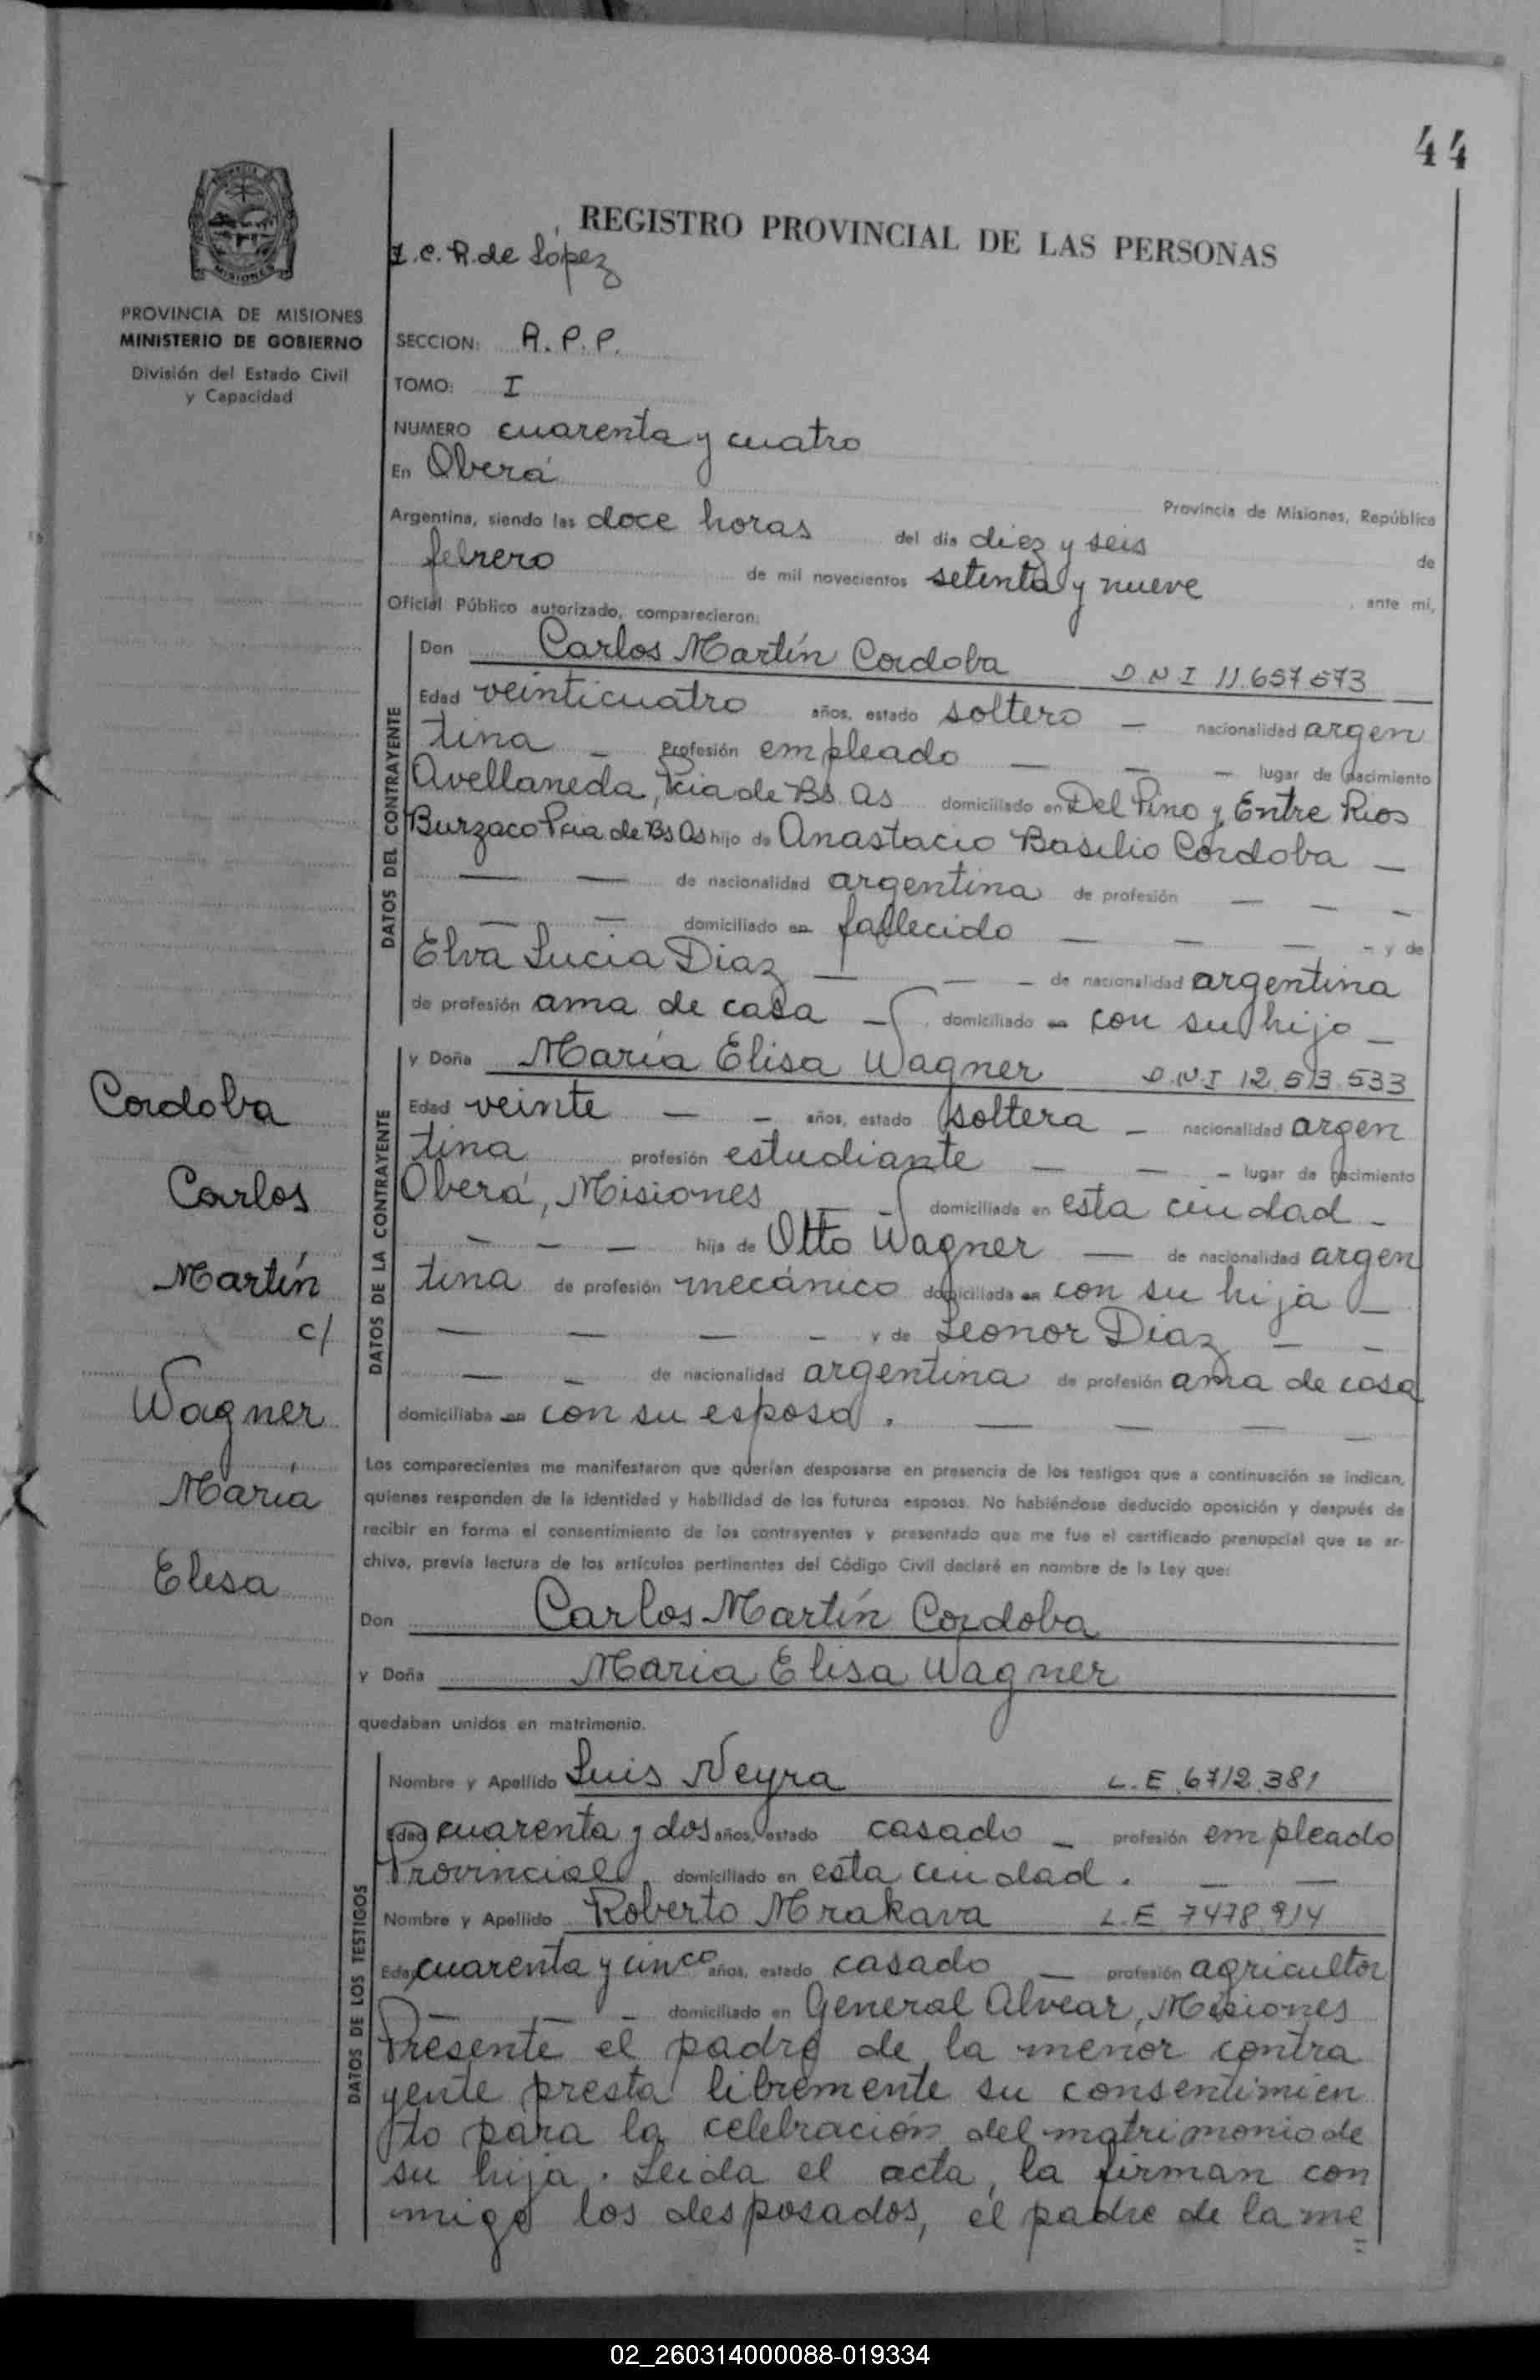 44
REGISTRO PROVINCIAL DE LAS PERSONAS
I.C.R. de López
PROVINCIA DE MISIONES
MINISTERIO DE GOBIERNO
División del Estado Civil
y Capacidad
SECCION: A.P.P.
TOMO: I
NUMERO cuarenta y cuatro
En Oberá
Provincia de Misiones, República
Argentina, siendo las doce horas del día diez y seis de
febrero de mil novecientos setenta y nueve, ante mí,
Oficial Público autorizado, comparecieron:
DATOS DEL CONTRAYENTE
Don Carlos Martín Cordoba D.N.I 11.657.573
Edad veinticuatro años, estado soltero — nacionalidad argen
tina — Profesión empleado — — — lugar de nacimiento
Avellaneda, Pcia de Bs. As domiciliado en Del Pino y Entre Rios
Burzaco Pcia de Bs As hijo de Anastacio Basilio Cordoba —
— — de nacionalidad argentina de profesión — — —
— — domiciliado en fallecido — — — - y de
Elva Lucia Diaz — — — de nacionalidad argentina
de profesión ama de casa — domiciliado en con su hijo —
DATOS DE LA CONTRAYENTE
y Doña María Elisa Wagner D.N.I 12.513.533
Edad veinte — — años, estado soltera — nacionalidad argen
tina profesión estudiante — — — lugar de nacimiento
Oberá, Misiones — — domiciliada en esta ciudad —
— — — hija de Otto Wagner — de nacionalidad argen
tina de profesión mecánico domiciliada en con su hija —
— — — — y de Leonor Diaz — —
— — de nacionalidad argentina de profesión ama de casa
domiciliaba en con su esposo. — — — —
Cordoba
Carlos
Martín
c/
Wagner
María
Elisa
Los comparecientes me manifestaron que querían desposarse en presencia de los testigos que a continuación se indican,
quienes responden de la identidad y habilidad de los futuros esposos. No habiéndose deducido oposición y después de
recibir en forma el consentimiento de los contrayentes y presentado que me fue el certificado prenupcial que se ar-
chiva, previa lectura de los artículos pertinentes del Código Civil declaré en nombre de la Ley que:
Don Carlos Martín Cordoba
y Doña Maria Elisa Wagner
quedaban unidos en matrimonio.
DATOS DE LOS TESTIGOS
Nombre y Apellido Luis Neyra L.E 6712.381
Edad cuarenta y dos años, estado casado — profesión empleado
Provincial domiciliado en esta ciudad. — —
Nombre y Apellido Roberto Mrakava L.E 7478.914
Edad cuarenta y cinco años, estado casado — profesión agricultor
— — — domiciliado en General Alvear, Misiones
Presente el padre de la menor contra
yente presta libremente su consentimien
to para la celebración del matrimonio de
su hija. Leida el acta, la firman con
migo los desposados, el padre de la me
02_260314000088-019334